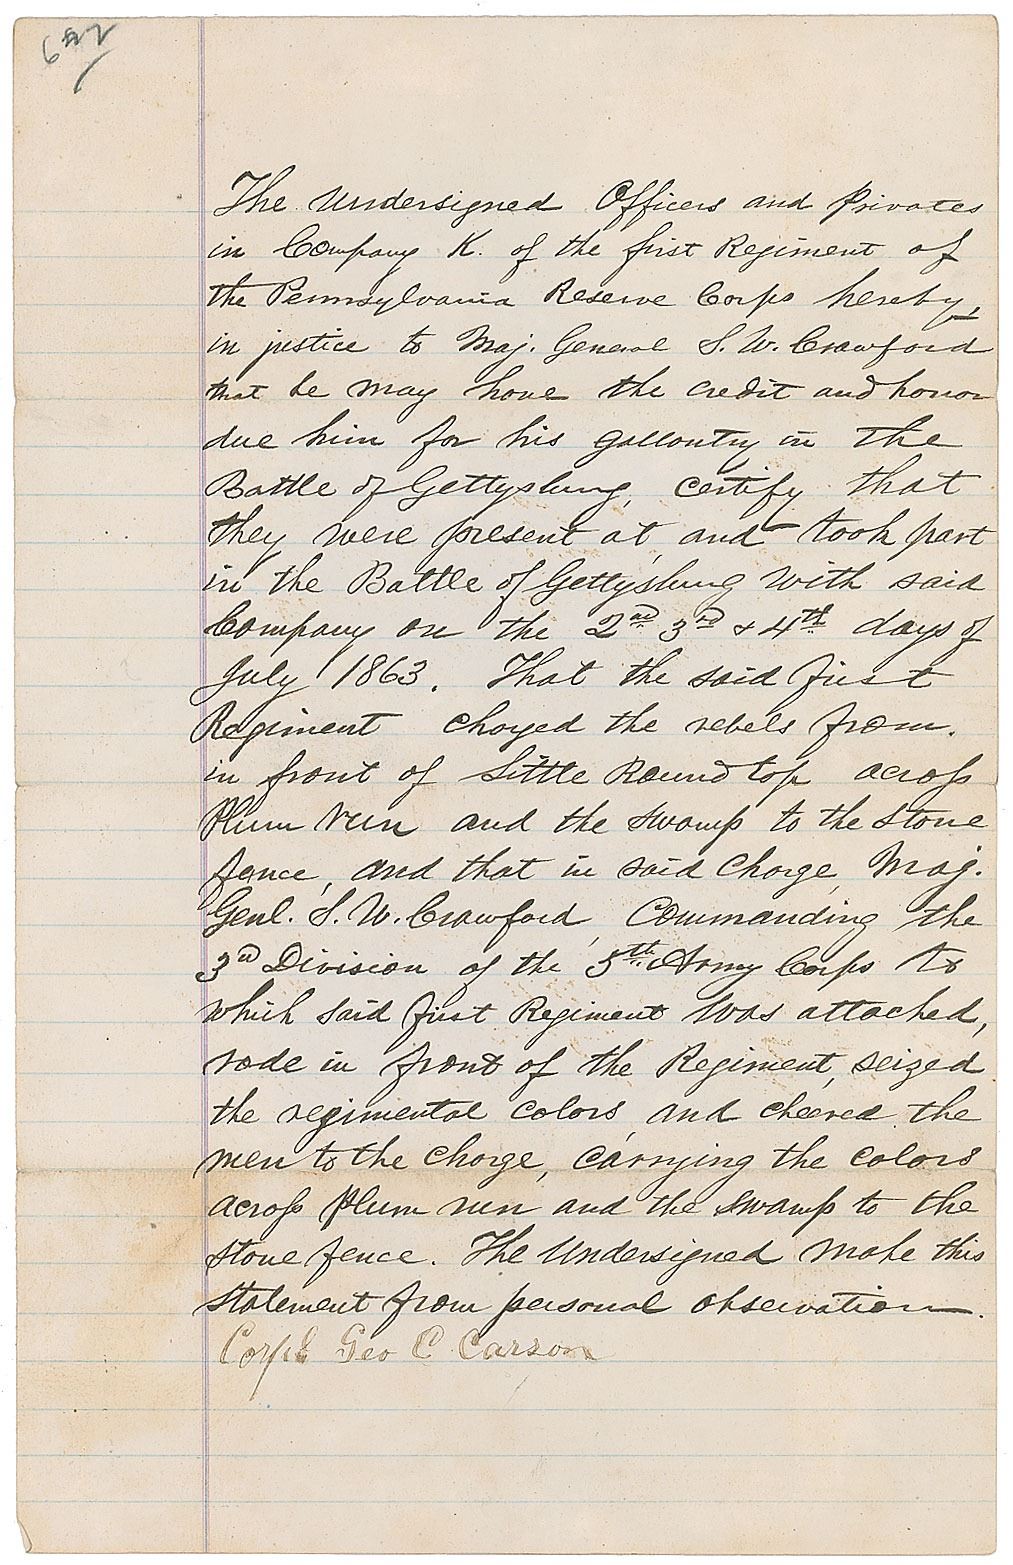 The Undersigned Officers and Privates
in Company K. of the first Regiment of
the Pennsylvania Reserve Corps hereby,
in justice to Maj. General S. W. Crawford
that he may have the credit and honor
due him for his gallantry in the
Battle of Gettysburg, certify that
they were present at, and took part
in the Battle of Gettysburg with said
Company on the 2nd 3rd & 4th days of
July 1863. That the said first
Regiment charged the rebels from.
in front of Little Round top across
Plum run and the swamp to the stone
fence, and that in said charge, Maj.
Genl. S. W. Crawford, Commanding the
3rd Division of the 5th Army Corps to
which said first Regiment was attached,
rode in front of the Regiment, seized
the regimental colors, and cheered the
men to the charge, carrying the colors
across Plum run and the swamp to the
stone fence. The Undersigned make this
statement from personal observation.
Corpl Geo C Carson